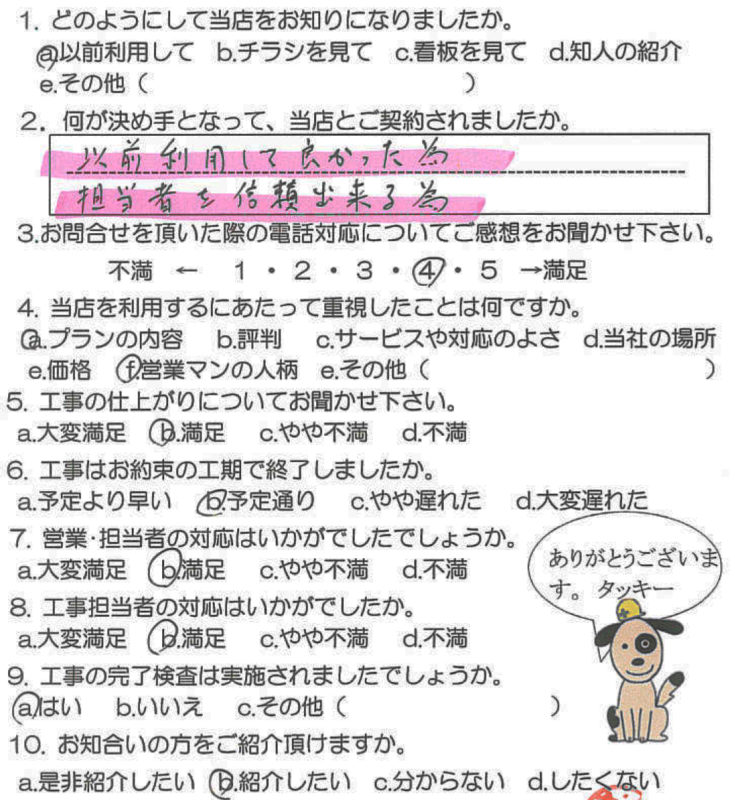 1. どのようにして当店をお知りになりましたか。
a.以前利用して b.チラシを見て c.看板を見て d.知人の紹介
e.その他（ ）
2. 何が決め手となって、当店とご契約されましたか。
以前利用して良かった為
担当者を信頼出来る為
3.お問合せを頂いた際の電話対応についてご感想をお聞かせ下さい。
不満 ← 1・2・3・4・5 →満足
4. 当店を利用するにあたって重視したことは何ですか。
a.プランの内容 b.評判 c.サービスや対応のよさ d.当社の場所
e.価格 f.営業マンの人柄 e.その他（ ）
5. 工事の仕上がりについてお聞かせ下さい。
a.大変満足 b.満足 c.やや不満 d.不満
6. 工事はお約束の工期で終了しましたか。
a.予定より早い b.予定通り c.やや遅れた d.大変遅れた
7. 営業・担当者の対応はいかがでしたでしょうか。
a.大変満足 b.満足 c.やや不満 d.不満
ありがとうございま
す。 タッキー
8. 工事担当者の対応はいかがでしたか。
a.大変満足 b.満足 c.やや不満 d.不満
9. 工事の完了検査は実施されましたでしょうか。
a.はい b.いいえ c.その他（ ）
10. お知合いの方をご紹介頂けますか。
a.是非紹介したい b.紹介したい c.分からない d.したくない